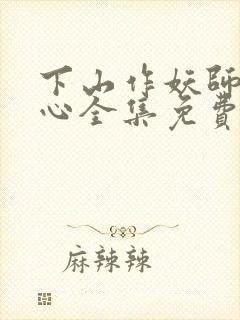 下山作妖師
心全集免費
麻辣辣